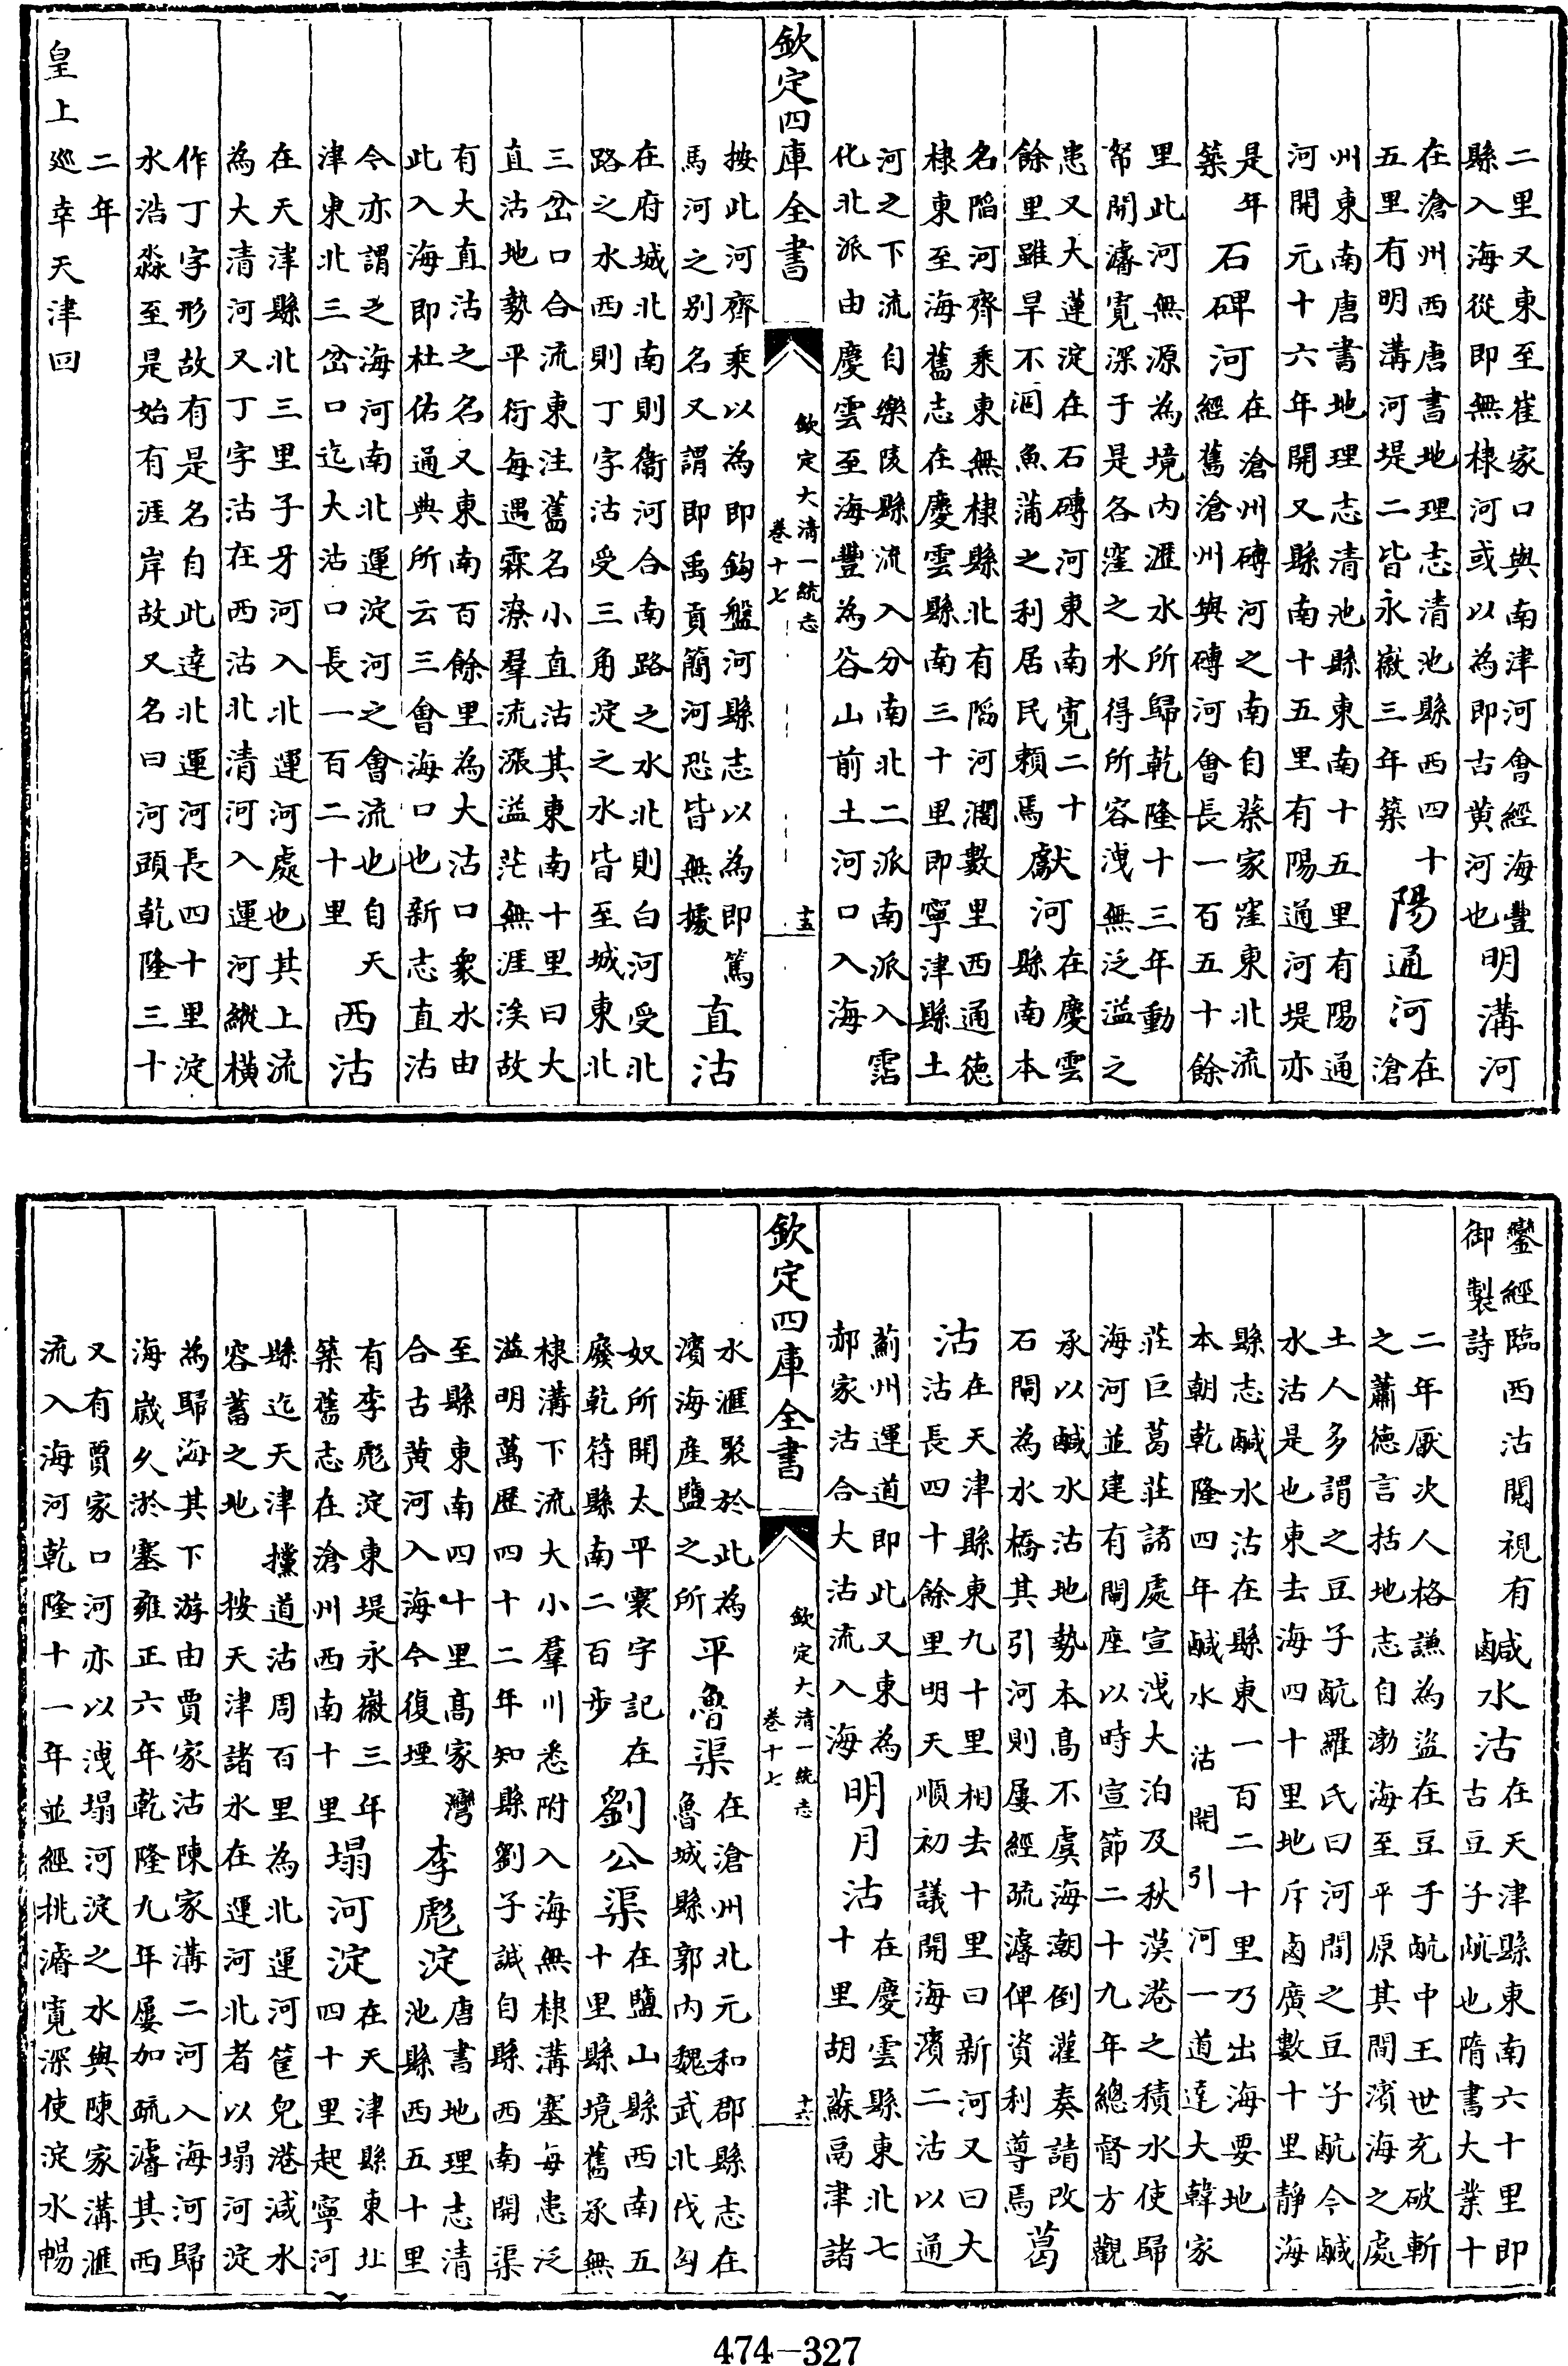 二里又東至崔家口與南津河會經海豐
縣入海從即無棣河或以為即古黄河也
明溝河
在滄州西唐書地理志清池縣西四十
五里有明溝河堤二皆永徽三年築
陽通河
在
滄
州東南唐書地理志清池縣東南十五里有陽通
河開元十六年開又縣南十五里有陽通河堤亦
是年
築
石碑河
在滄州磚河之南自蔡家窪東北流
經舊滄州與磚河會長一百五十餘
里此河無源為境内滙水所歸乾隆十三年動
帑開濬寛深于是各窪之水得所容洩無泛溢之
患又大蓮淀在石磚河東南寛二十
餘里雖旱不涸魚蒲之利居民賴焉
獻河
在慶雲
縣南本
名陷河齊乘東無棣縣北有陷河濶數里西通德
棣東至海舊志在慶雲縣南三十里即寧津縣土
河之下流自樂陵縣流入分南北二派南派入霑
化北派由慶雲至海豐為谷山前土河口入海
欽定四庫全書
欽定大清一統志
卷十七
十五
按此河齊乘以為即鈎盤河縣志以為即篤
馬河之别名又謂即禹貢簡河恐皆無據
直沽
在府城北南則衞河合南路之水北則白河受北
路之水西則丁字沽受三角淀之水皆至城東北
三岔口合流東注舊名小直沽其東南十里曰大
直沽地勢平衍每遇霖潦羣流漲溢茫無涯涘故
有大直沽之名又東南百餘里為大沽口衆水由
此入海即杜佑通典所云三會海口也新志直沽
今亦謂之海河南北運淀河之會流也自天
津東北三岔口迄大沽口長一百二十里
西沽
在天津縣北三里子牙河入北運河處也其上流
為大清河又丁字沽在西沽北清河入運河縱横
作丁字形故有是名自此逹北運河長四十里淀
水浩淼至是始有涯岸故又名曰河頭乾隆三十
二年
皇上巡幸天津回
鑾經臨西沽閲視有
御製詩
鹹水沽
在天津縣東南六十里即
古豆子䴚也隋書大業十
二年厭次人格謙為盗在豆子䴚中王世充破斬
之蕭德言括地志自渤海至平原其間濱海之處
土人多謂之豆子䴚羅氏曰河間之豆子䴚今鹹
水沽是也東去海四十里地斥鹵廣數十里静海
縣志鹹水沽在縣東一百二十里乃出海要地
本朝乾隆四年鹹水沽開引河一道達大韓家
莊巨葛莊諸處宣洩大泊及秋漠港之積水使歸
海河並建有閘座以時宣節二十九年總督方觀
承以鹹水沽地勢本高不虞海潮倒灌奏請改
石閘為水橋其引河則屢經疏濬俾資利導焉
葛
沽
在天津縣東九十里相去十里曰新河又曰大
沽長四十餘里明天順初議開海濱二沽以通
薊州運道即此又東為
郝家沽合大沽流入海
明月沽
在慶雲縣東北七
十里胡蘇鬲津諸
水滙聚於此為
濱海產鹽之所
平魯渠
在滄州北元和郡縣志在
魯城縣郭内魏武北伐匈
奴所開太平寰宇記在
廢乾符縣南二百步
劉公渠
在鹽山縣西南五
十里縣境舊承無
棣溝下流大小羣川悉附入海無棣溝塞每患泛
溢明萬歴四十二年知縣劉子諴自縣西南開渠
至縣東南四十里髙家灣
合古黄河入海今復堙
李彪淀
唐書地理志清
池縣西五十里
有李彪淀東堤永徽三年
築舊志在滄州西南十里
塌河淀
在天津縣東北
四十里起寧河
縣迄天津攩道沽周百里為北運河筐兒港减水
容蓄之地 按天津諸水在運河北者以塌河淀
為歸海其下游由賈家沽陳家溝二河入海河歸
海歲久淤塞雍正六年乾隆九年屢加疏濬其西
又有賈家口河亦以洩塌河淀之水與陳家溝滙
流入海河乾隆十一年並經挑濬寛深使淀水暢
474-327